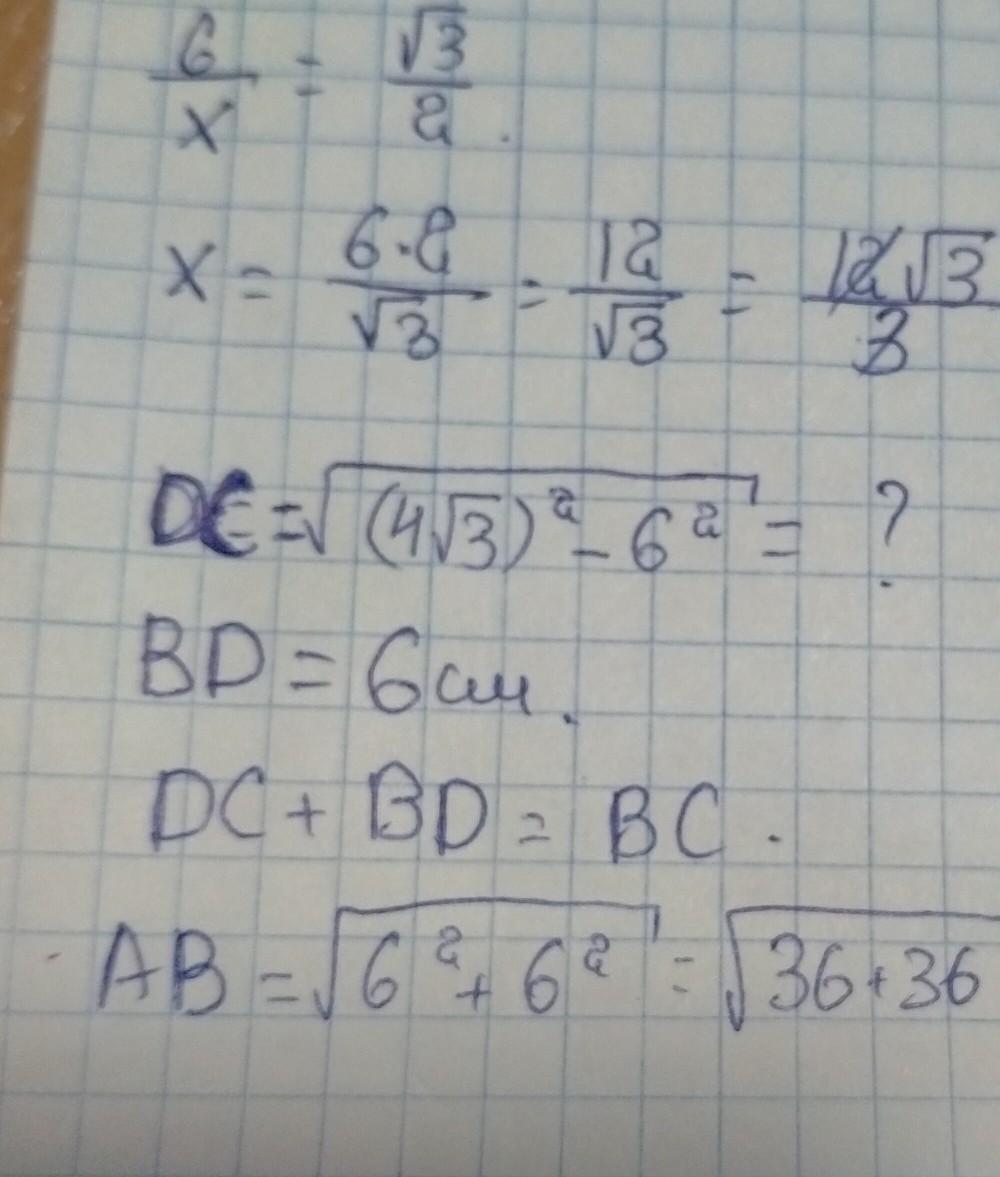 6/x = √3/2.
x = 6·2/√3 = 12/√3 = 12√3/3
DC = √((4√3)² - 6²) = ?
BD = 6см.
DC + BD = BC.
AB = √(6² + 6²) = √(36+36